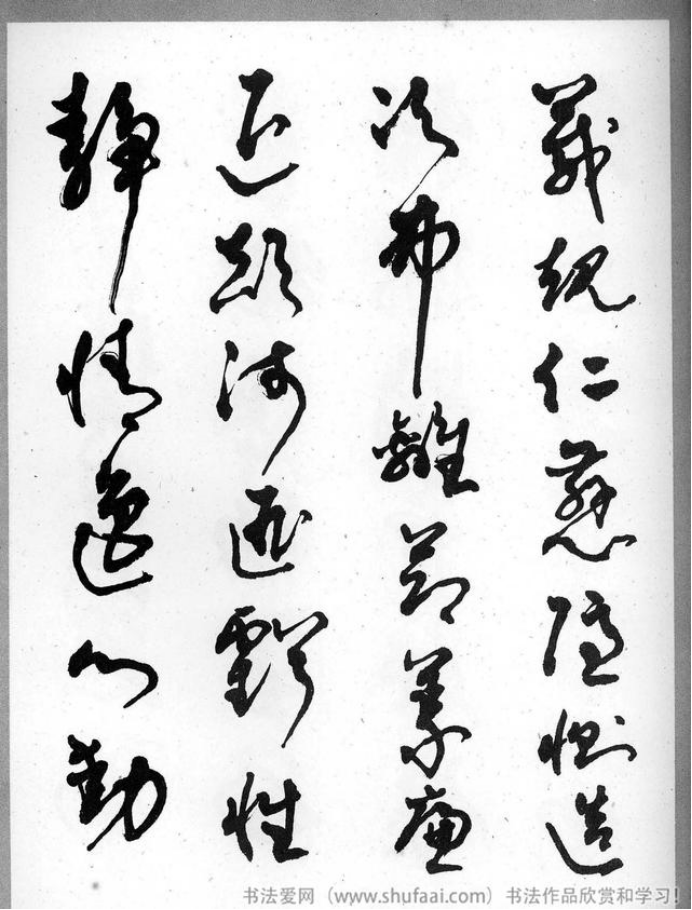 箴規仁慈隱惻造
次弗離節義廉
退顛沛匪虧性
靜情逸心動
书法爱网（www.shufaai.com）书法作品欣赏和学习！